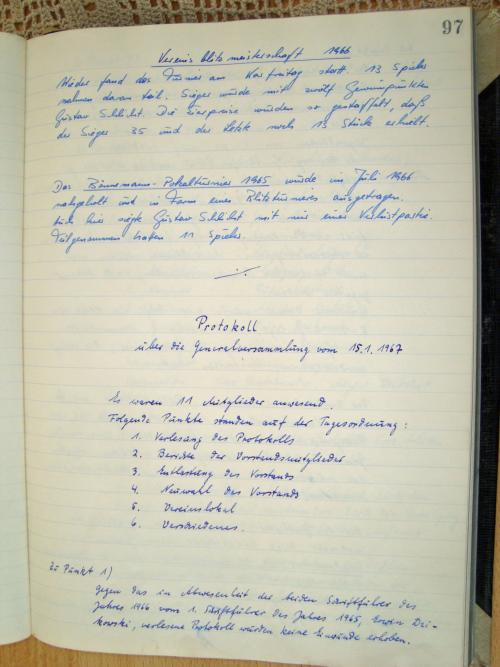 97
Vereinsblitzmeisterschaft 1966
Wieder fand das Turnier am Karfreitag statt. 13 Spieler
nahmen daran teil. Sieger wurde mit zwölf Gewinnpunkten
Gustav Schlicht. Die Eierpreise wurden so gestaffelt, daß
der Sieger 35 und der Letzte noch 13 Stück erhielt.
Das Bönnemann-Pokalturnier 1965 wurde im Juli 1966
nachgeholt und in Form eines Blitzturnieres ausgetragen.
Auch hier siegte Gustav Schlicht mit nur einer Verlustpartie.
Teilgenommen haben 11 Spieler.
Protokoll
über die Generalversammlung vom 15.1.1967
Es waren 11 Mitglieder anwesend.
Folgende Punkte standen auf der Tagesordnung:
1. Verlesung des Protokolls
2. Berichte der Vorstandsmitglieder
3. Entlastung des Vorstands
4. Neuwahl des Vorstands
5. Vereinslokal
6. Verschiedenes.
Zu Punkt 1)
Gegen das in Abwesenheit der beiden Schriftführer des
Jahres 1966 vom 1. Schriftführer des Jahres 1965, Erwin
verlesene Protokoll wurden keine Einwände erhoben.